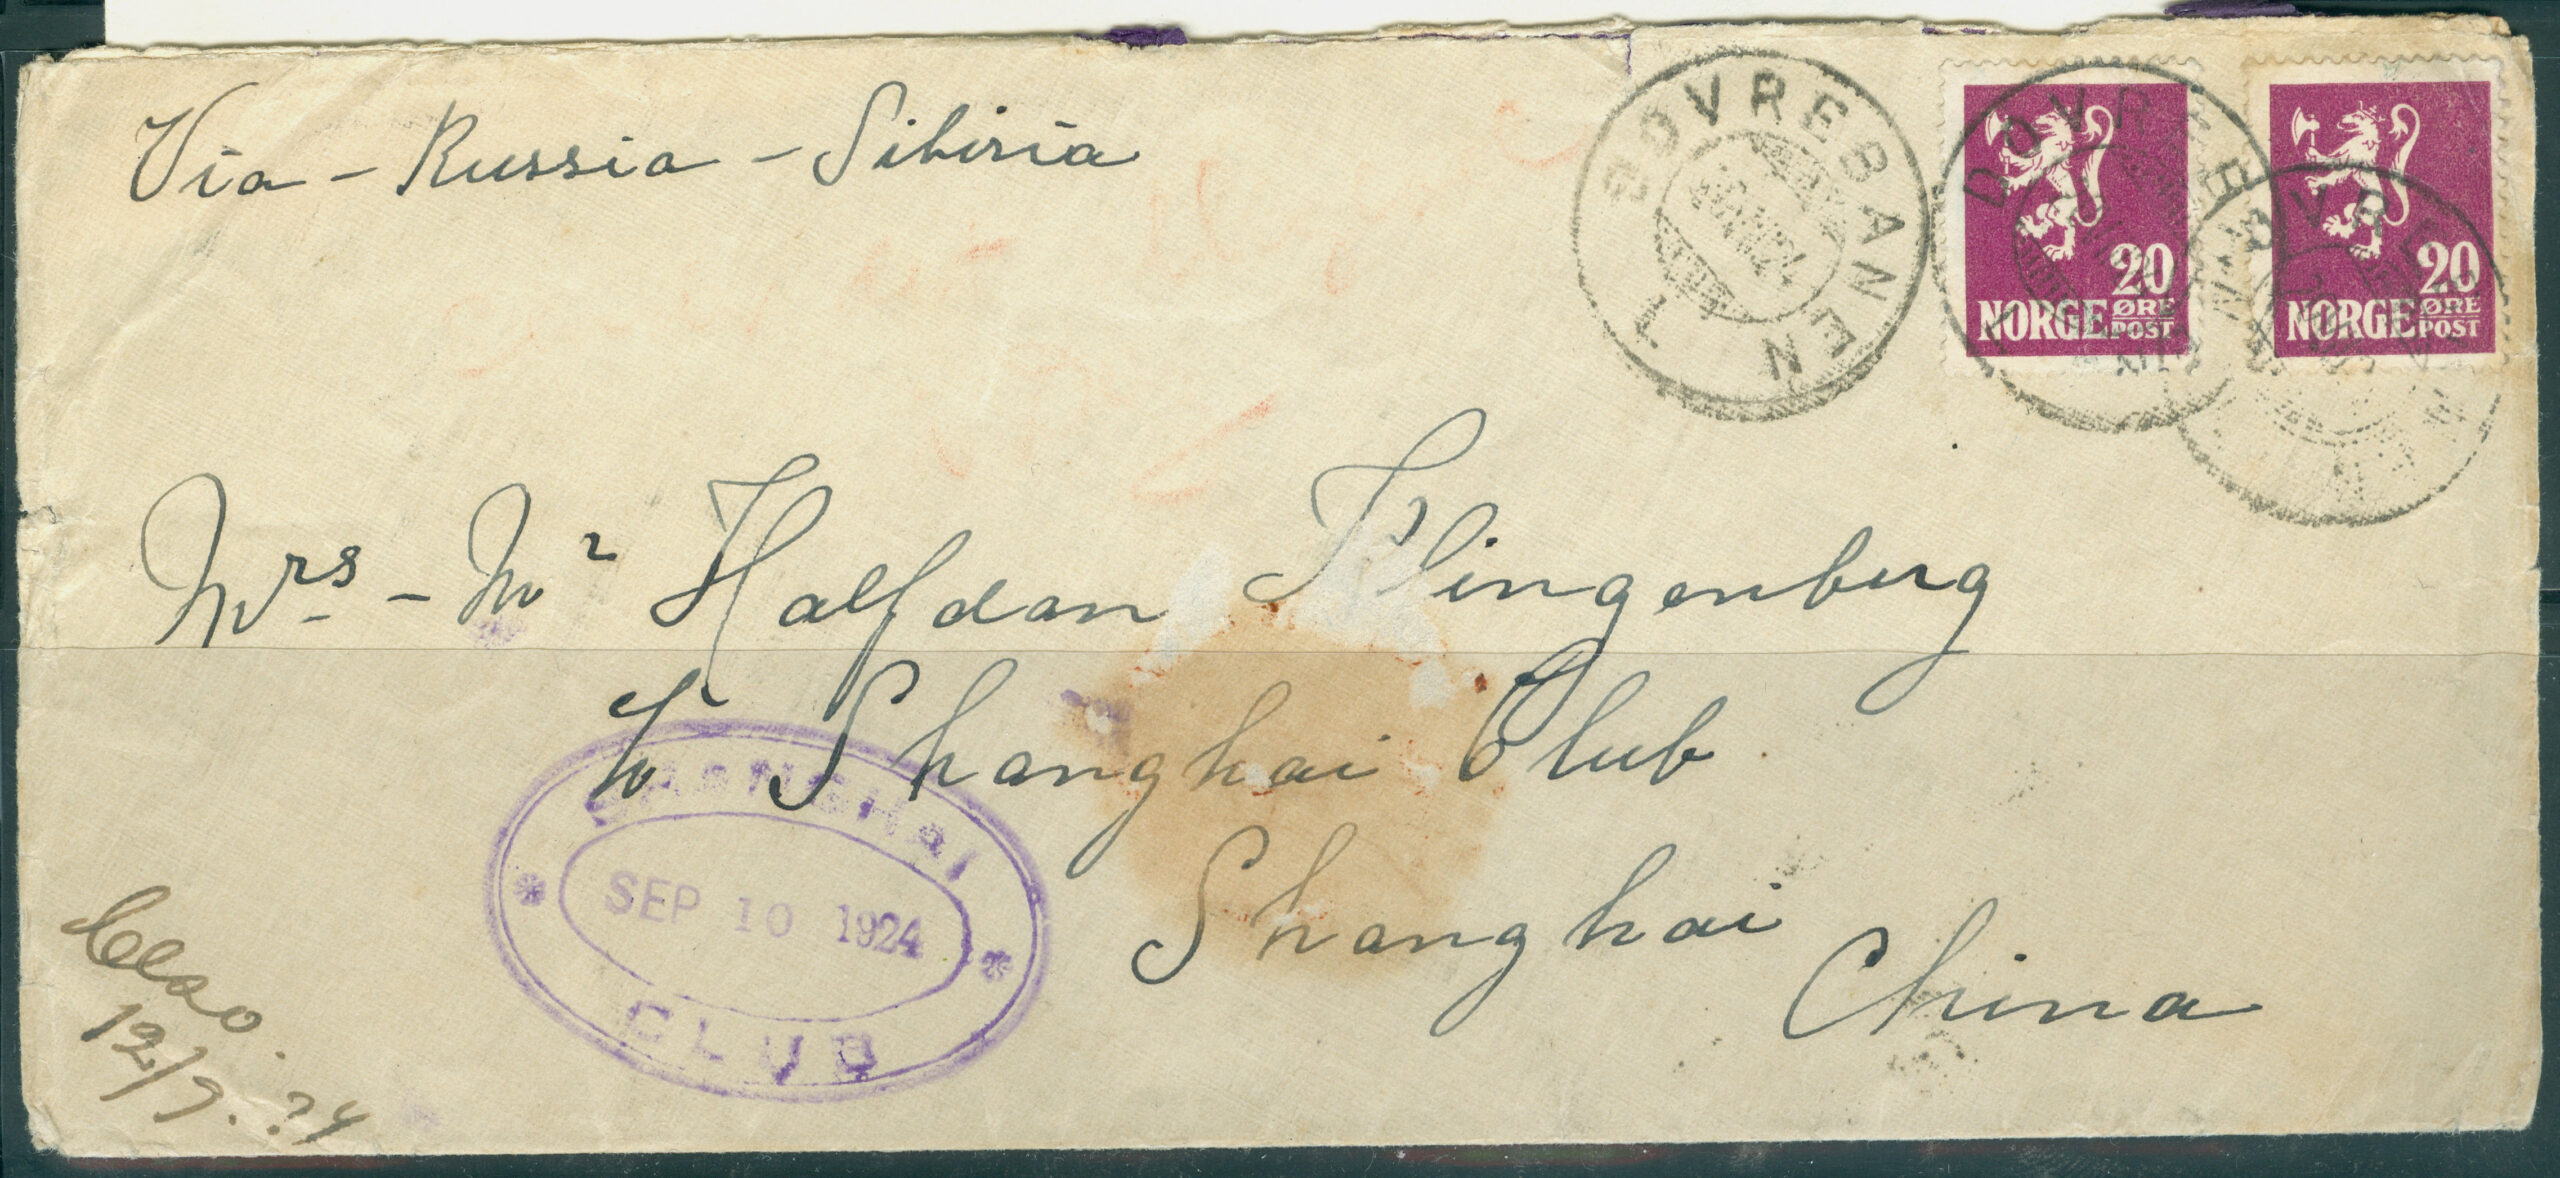 Via - Russia - Sibiria
DOVREBANEN
DOVREB N
20
NORGE ØRE POST
20
NORGE ØRE POST
Mrs - Mr Halfdan Klingenberg
c/o Shanghai Club
Shanghai
China
SHANGHAI
SEP 10 1924
CLUB
12/9.24